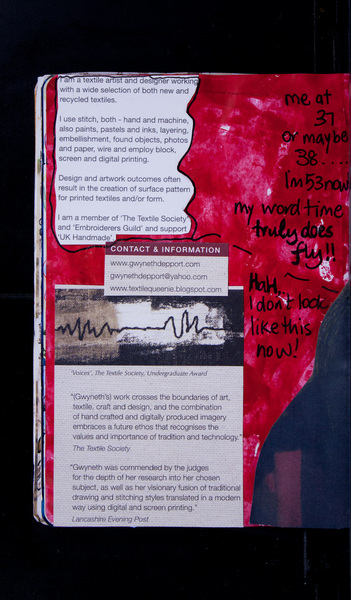 I am a textile artist and designer working
with a wide selection of both new and
recycled textiles.
I use stitch, both - hand and machine,
also paints, pastels and inks, layering,
embellishment, found objects, photos
and paper, wire and employ block,
screen and digital printing.
Design and artwork outcomes often
result in the creation of surface pattern
for printed textiles and/or form.
I am a member of 'The Textile Society'
and 'Embroiderers Guild' and support
'UK Handmade'.
CONTACT & INFORMATION
www.gwynethdepport.com
gwynethdepport@yahoo.com
www.textilequeenie.blogspot.com
'Voices', The Textile Society, Undergraduate Award
"(Gwyneth's) work crosses the boundaries of art,
textile, craft and design, and the combination
of hand crafted and digitally produced imagery
embraces a future ethos that recognises the
values and importance of tradition and technology."
The Textile Society
"Gwyneth was commended by the judges
for the depth of her research into her chosen
subject, as well as her visionary fusion of traditional
drawing and stitching styles translated in a modern
way using digital and screen printing."
Lancashire Evening Post
me at
37
or maybe
38....
I'm 53 now
my word time
truly does
fly!!
Hah,
I don't look
like this
now!